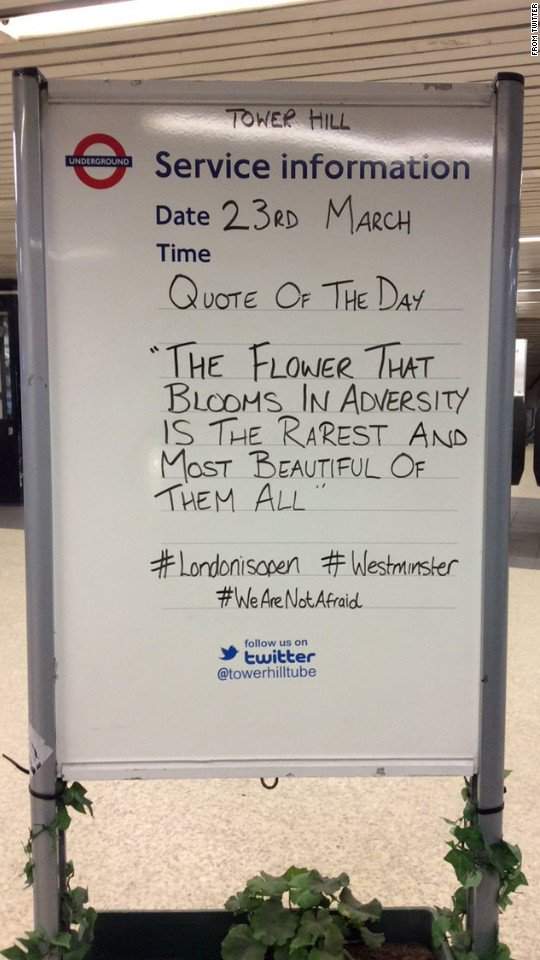 FROM TWITTER
TOWER HILL
UNDERGROUND
Service information
Date 23RD MARCH
Time
QUOTE OF THE DAY
"THE FLOWER THAT
BLOOMS IN ADVERSITY
IS THE RAREST AND
MOST BEAUTIFUL OF
THEM ALL"
#Londonisopen #Westminster
#WeAreNotAfraid
follow us on
twitter
@towerhilltube